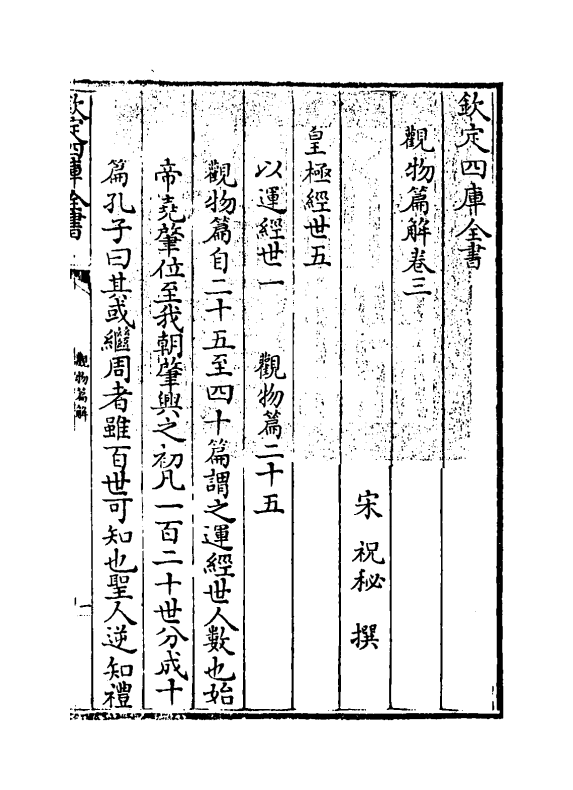 欽定四庫全書
觀物篇解卷三
宋 祝秘 撰
皇極經世五
以運經世一 觀物篇二十五
觀物篇自二十五至四十篇謂之運經世人數也始
帝堯肇位至我朝肇興之初凡一百二十世分成十
篇孔子曰其或繼周者雖百世可知也聖人逆知禮
欽定四庫全書
觀物篇解
一